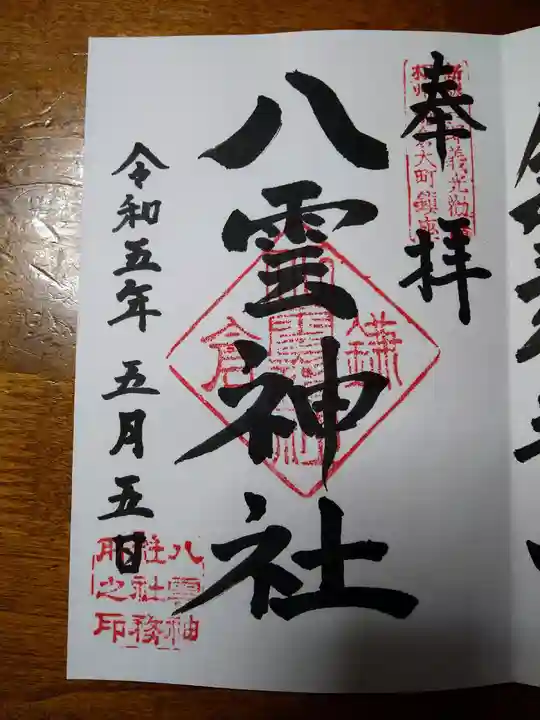 奉拝
大町鎮座
八雲神社
鎌倉
令和五年 五月五日
八雲神
社社務
所之印